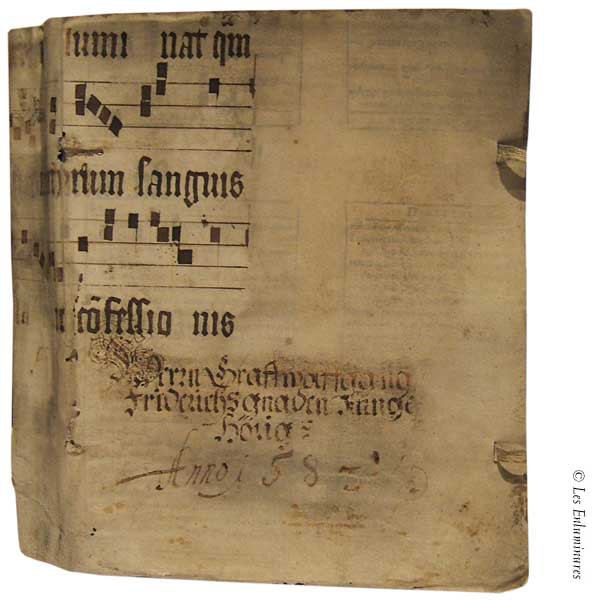 lumi nat qm
rum sanguis
cōfessio nis
Herrn Graff Wolffgang
Friderichs gnaden zunge
Hörig:
Anno 1582
© Les Enluminures